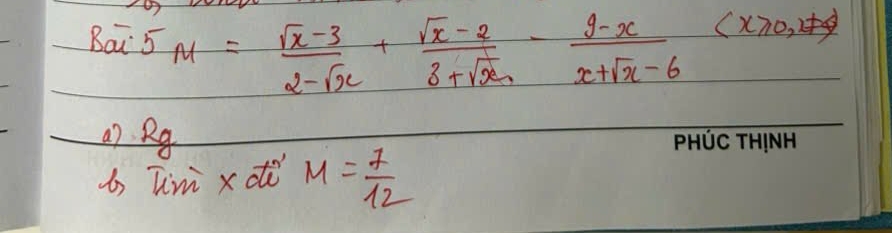 Bài 5 M = \frac{\sqrt{x}-3}{2-\sqrt{x}} + \frac{\sqrt{x}-2}{3+\sqrt{x}} - \frac{9-x}{x+\sqrt{x}-6} (x≥0, x≠
a) Rg
PHÚC THỊNH
b) Tìm x để M = \frac{7}{12}